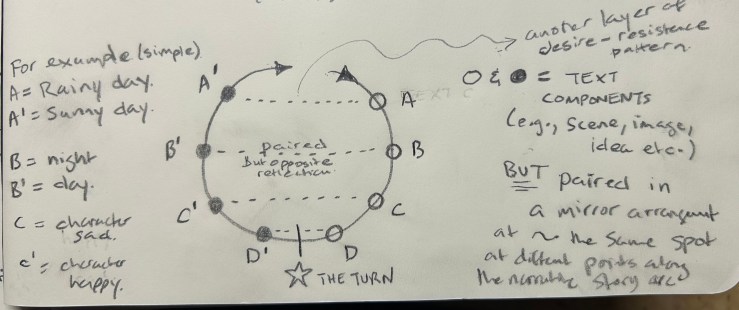 For example (simple)
A = Rainy day.
A' = Sunny day.
B = night
B' = day.
C = character
sad.
c' = character
happy.
A'
B'
C'
D'
A
B
C
D
paired
But opposite
reflection
THE TURN
anoter layer of
desire-resistence
pattern.
O & ● = TEXT
COMPONENTS
(e.g., scene, image,
idea etc.)
BUT paired in
a mirror arrangment
at ~ the same spot
at different points along
the narrative story arc